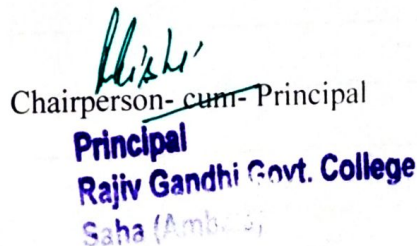 Chairperson- cum- Principal
Principal
Rajiv Gandhi Govt. College
Saha (Ambala)